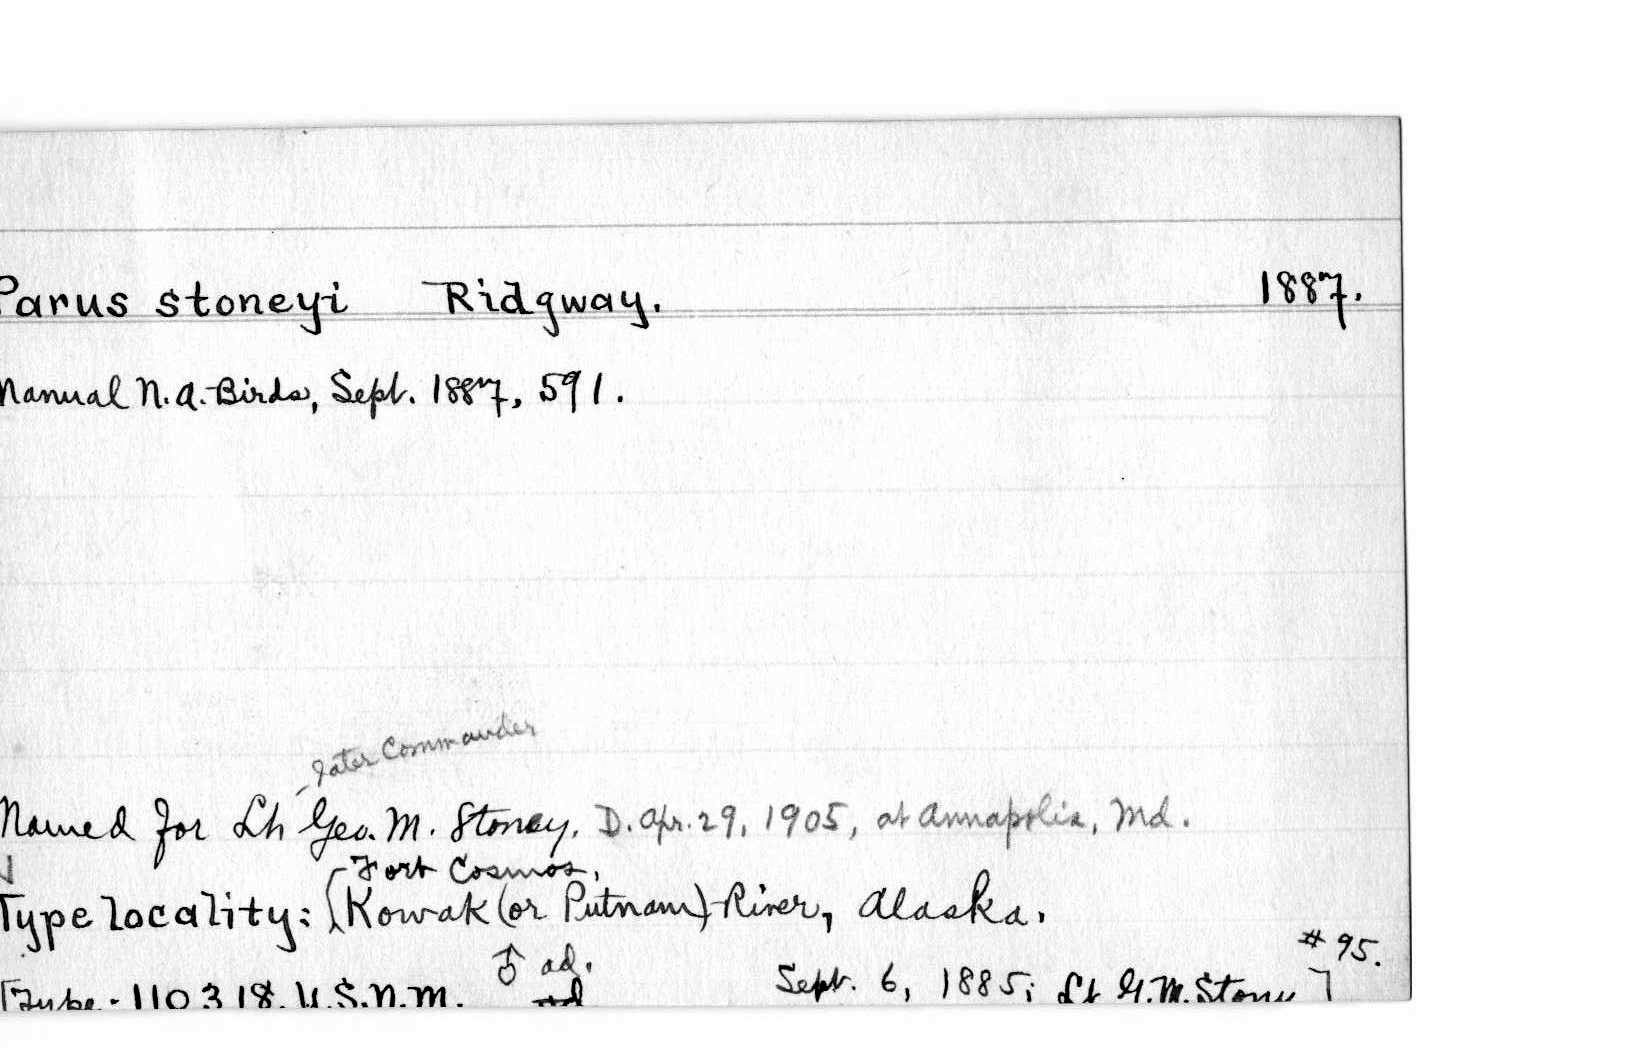 Parus stoneyi Ridgway. 1887.
Manual N.A. Birds, Sept. 1887, 591.
later Commander
Named for Lt. Geo. M. Stoney. D. Apr. 29, 1905, at Annapolis, Md.
Fort Cosmos,
Type locality: (Kowak (or Putnam) River, Alaska.
# 95.
♂ ad.
[Type - 110318. U.S.N.M. ad Sept. 6, 1885; Lt G.M. Stoney]